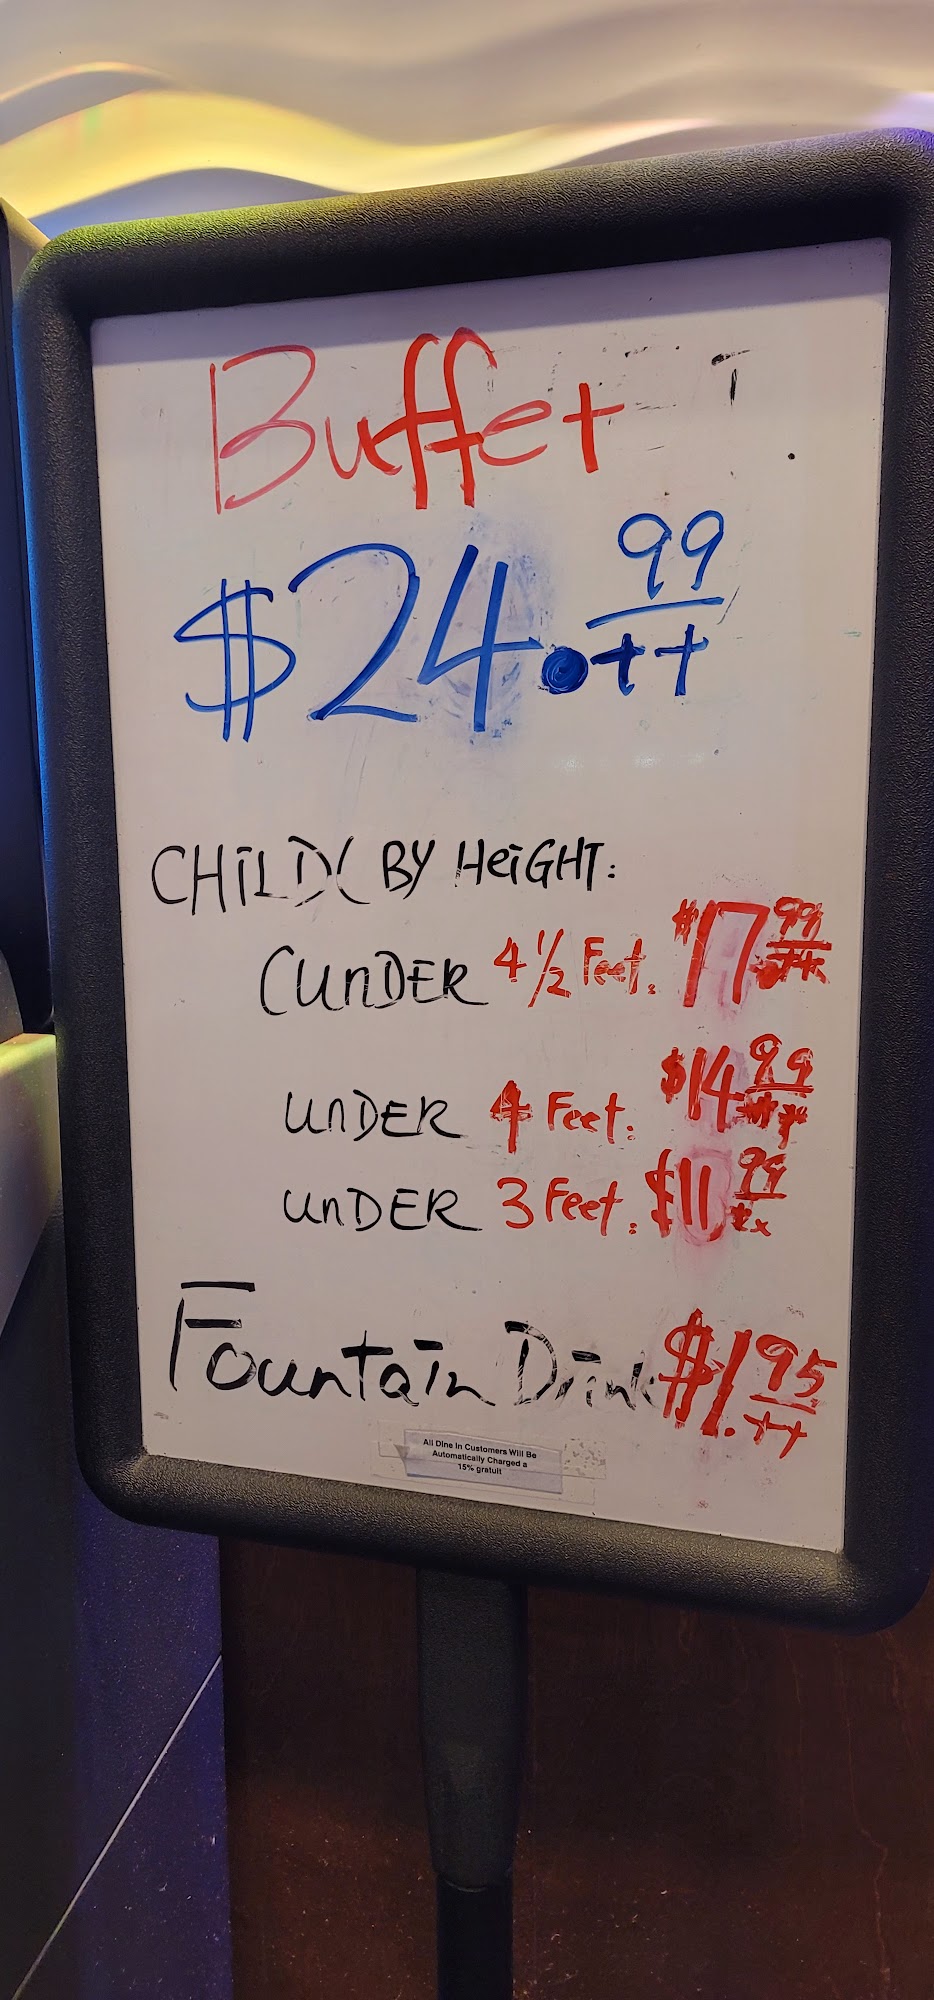 Buffet
$24.99++
CHILD( BY HEIGHT:
(UNDER 4 1/2 Feet: $17.99++
UNDER 4 Feet: $14.99++
UNDER 3 Feet: $11.99++
Fountain Drink $1.95++
All Dine In Customers Will Be
Automatically Charged a
15% gratuit